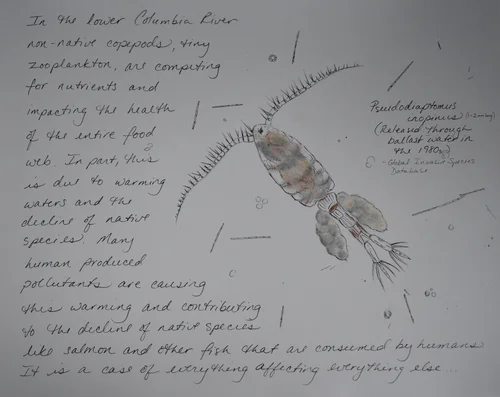 In the lower Columbia River
non-native copepods, tiny
zooplankton, are competing
for nutrients and
impacting the health
of the entire food
web. In part, this
is due to warming
waters and the
decline of native
species. Many
human produced
pollutants are causing
this warming and contributing
to the decline of native species
like salmon and other fish that are consumed by humans
It is a case of everything affecting everything else...
Pseudodiaptomus
inopinus (1-2mm)
(Released through
ballast water in
the 1980s)
- Global Invasive Species
Database